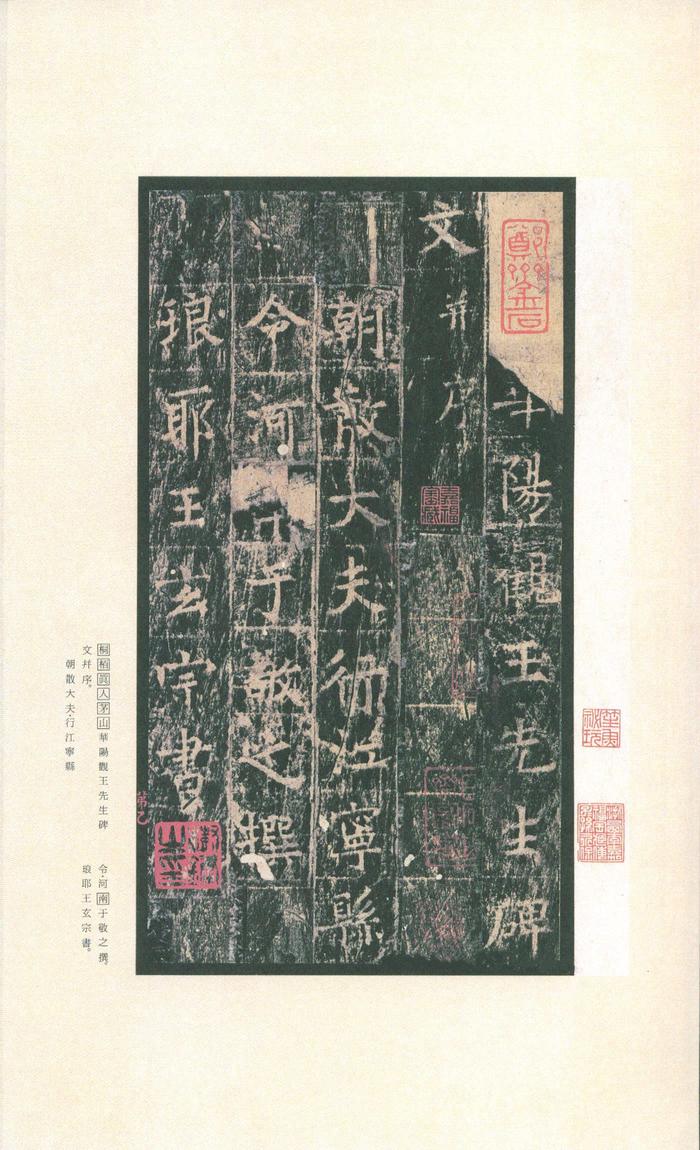 陽觀王先生碑
文并序
朝散大夫行江寧縣
令河于敬之撰
琅耶王玄宗書
桐栢眞人茅山華陽觀王先生碑
文幷序。
朝散大夫·行江寧縣
令·河南于敬之撰。
琅耶王玄宗書。